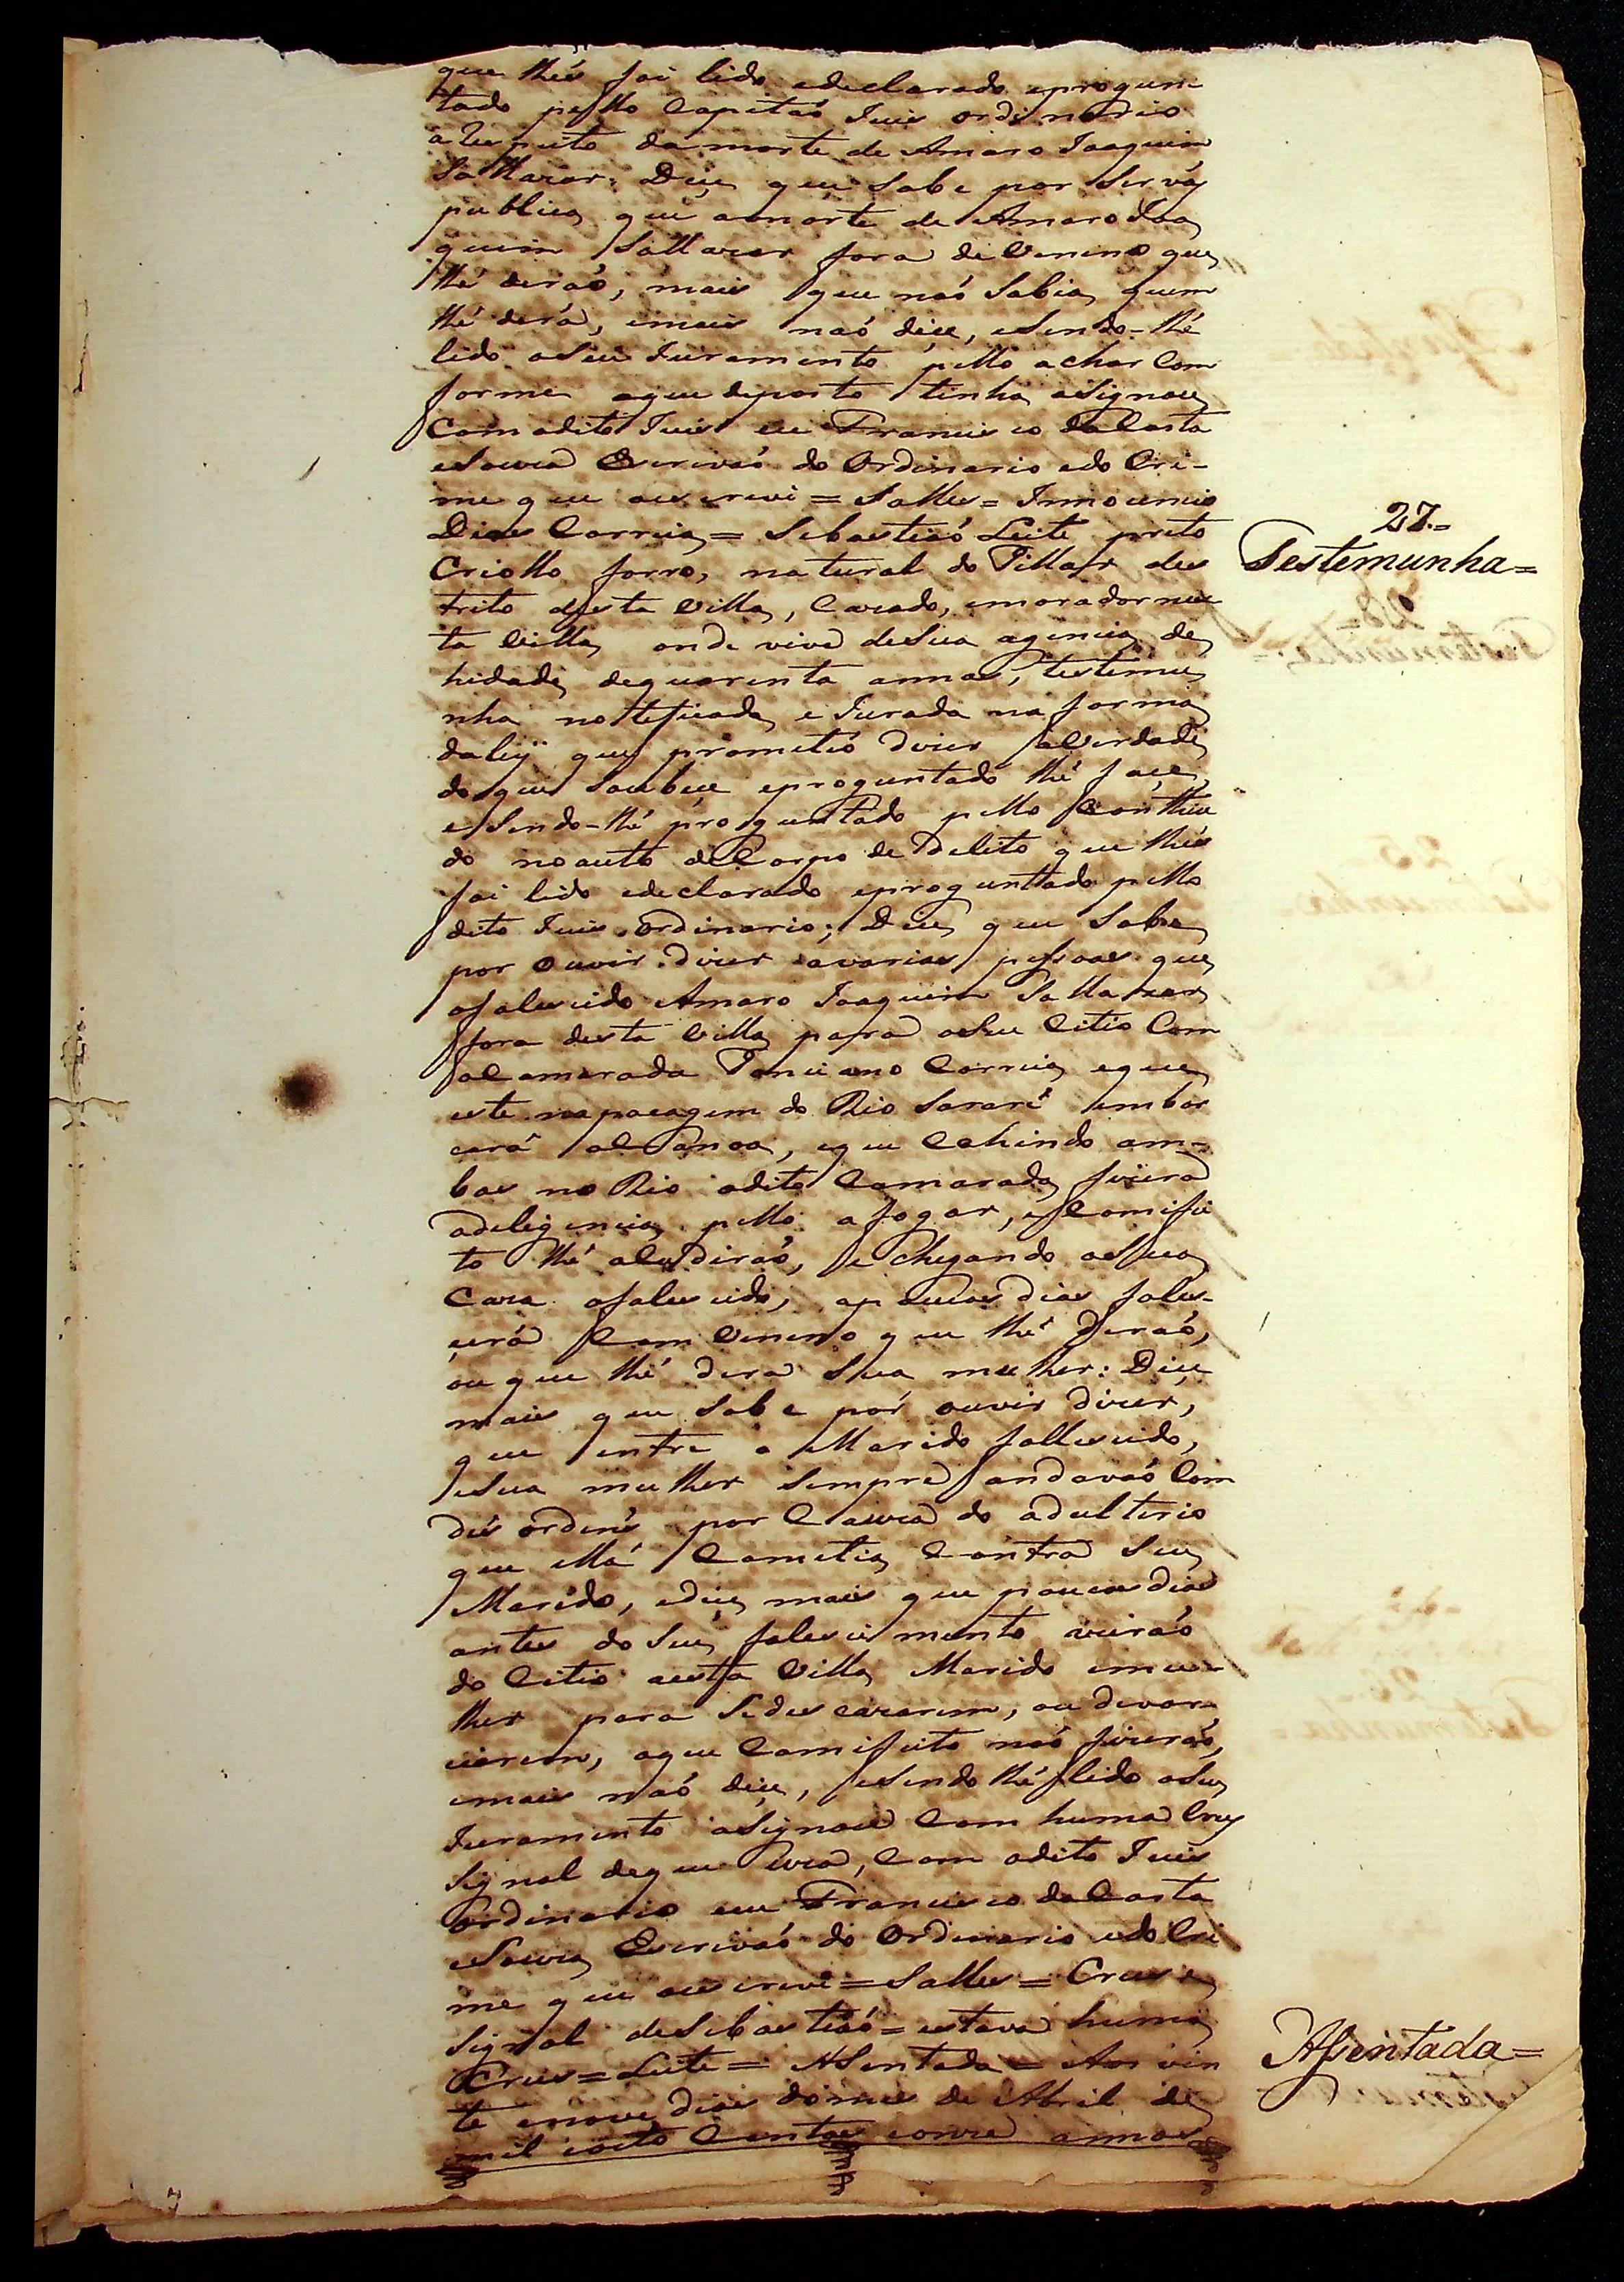 que lhés foi lido edeclarado eprogun
tado pello Capitaõ Juis ordinario
aRespeito damorte de Amaro Joaquim
Sallazar: Dice que sabe por ser vós
publica que amorte de Amaro Joa
quim Sallazar fora de Veneno que
lhé deraõ, mais que naõ Sabia quem
lhé dera, emais naõ dice, eSendo-lhé
lido oSeu Juramento pello achar Com
forme aque deposto tinha aSignou
Com odito Juis eu Francisco daCosta
eSouza Escrivaõ do Ordinario edo Cri-
me que oescrevi = Salles = Innocencio
Dias Correia = Sebastiaõ Leite preto
Criollo forro, natural do Pillar des
trito desta Villa, Cazado, emorador nes
ta Villa onde vive deSua agencia de
hidade dequarenta annos, testemu
nha noteficada e Jurada na forma
daley que prometeo dizer averdade
do que Soubece eproguntado lhé foce,
eSendo-lhé proguntado pello Contheu
do noauto deCorpo de delito que lhés
foi lido edeclarado eproguntado pello
dito Juis ordinario; Dice que Sabe
por Ouvir dizer avarias pessoas que
ofalescido Amaro Joaquim Sallazar
fora desta Villa para oSeu Citio Com
oCamarada Ponciano Correia eque
este napacagem do Rio Sararé embor
cará aCanoa, eque Cahindo am-
bos no Rio odito Camarada fizera
adeligencia pello afogar, eComifei
to lhé aCudiraõ, eChegando aSua
Caza ofalescido, apoucos dias fales-
cerá Com Veneno que lhé deraõ,
ou que lhé dera Sua mulher: Dice
mais que Sabe por ouvir dizer,
que entre o Marido fallescido,
eSua mulher Sempre andavaõ Com
dés ordens por Cauza do adulterio
que ella Cometia Contra Seu
Marido, edice mais que poucos dias
antes do Seu falescimento vieraõ
do Citio aesta Villa Marido emu-
lher para Sedescazarem, ou divor
ciarem, oque Comifeito naõ fizeraõ,
emais naõ dice, eSendo lhé lido oSeu
Juramento aSignou Com huma Crus
Signal deque uza, Com odito Juis
ordinario eeu Francisco daCosta
eSouza Escrivaõ do Ordinario edo Cri
me que oescrevi = Salles = Crus e
Signal deSebastiaõ = estava huma
Crus = Leite = ASentada = Aos vin
te enove dias domes de Abril de
mil eoito Centos eonze annos
27.=
Testemunha=
Assentada=